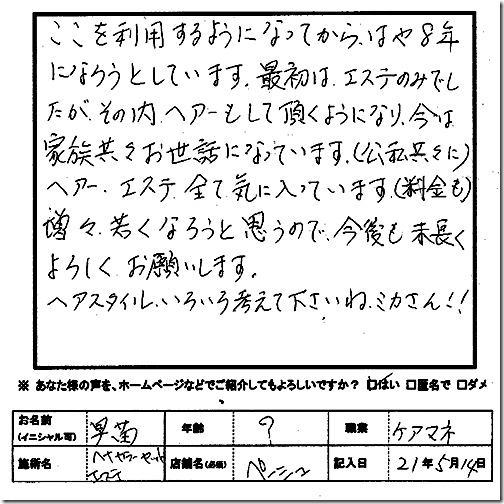 ここを利用するようになってから、はや8年
になろうとしています。最初は、エステのみでし
たが、その内、ヘアーもして頂くようになり、今は
家族共々お世話になっています。(公私共々に)
ヘアー、エステ、全て気に入っています。(料金も)
増々、若くなろうと思うので、今後も末長く
よろしくお願いします。
ヘアスタイル、いろいろ考えて下さいね、ミカさん!!
※ あなた様の声を、ホームページなどでご紹介してもよろしいですか? □はい □匿名で □ダメ
お名前
(イニシャル可)
年齢 ? 職業 ケアマネ
施術名 エステ
店舗名(必須) 記入日 21年5月14日